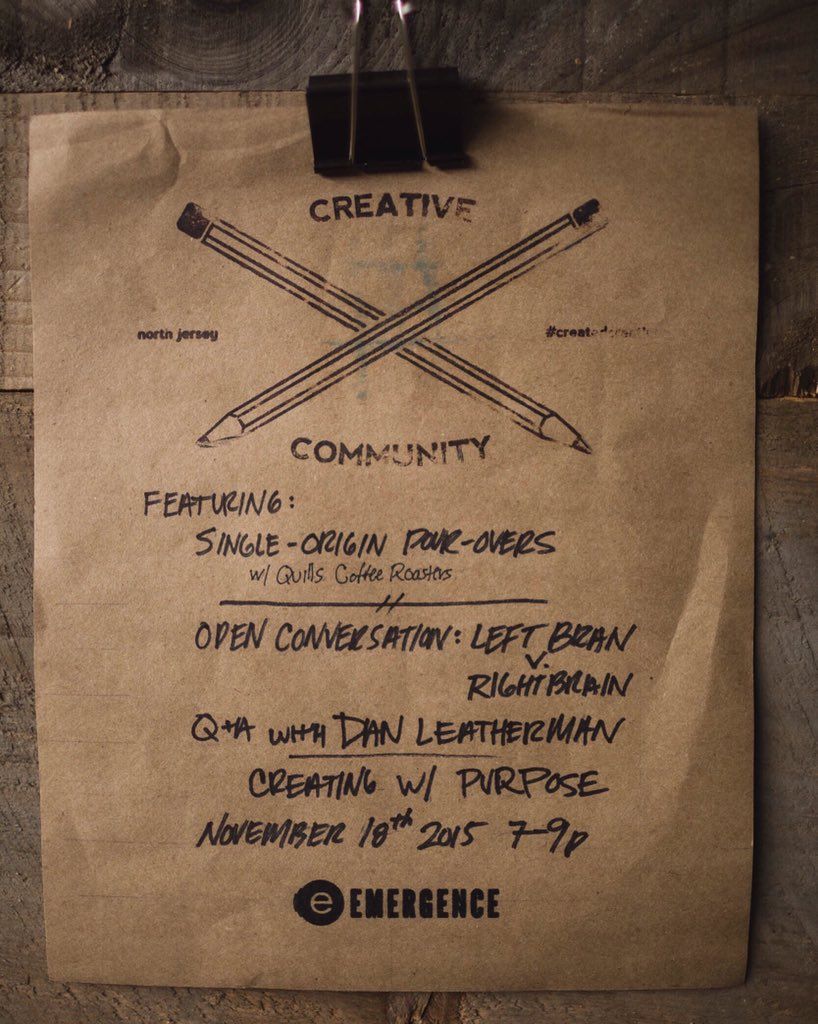 CREATIVE
north jersey
COMMUNITY
FEATURING:
SINGLE-ORIGIN POUR-OVERS
w/ Quills Coffee Roasters
OPEN CONVERSATION: LEFT BRAN
V.
RIGHT BRAIN
Q+A WITH DAN LEATHERMAN
CREATING W/ PURPOSE
NOVEMBER 18th 2015 7-9p
e EMERGENCE